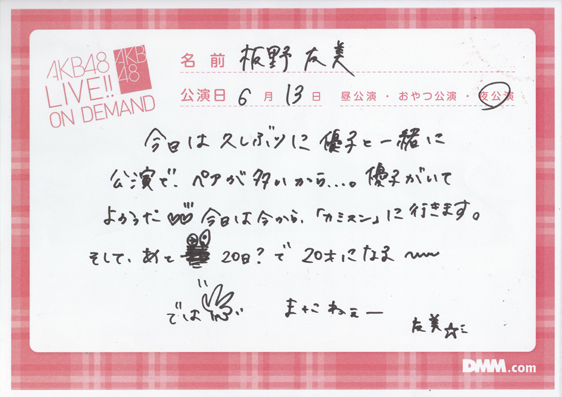 AKB48
LIVE!!
ON DEMAND
AKB
48
名前 板野友美
公演日 6月13日 昼公演・おやつ公演・夜公演
今日は久しぶりに優子と一緒に
公演で、ペアが多いから…。優子がいて
よかった 今日は今から、「カミスン」に行きます。
そして、あと 20日?で20才になる〜
では またねぇー
友美
DMM.com